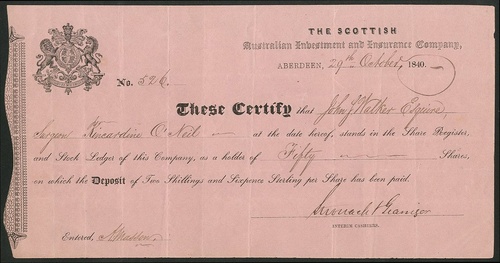 THE SCOTTISH
Australian Investment and Insurance Company,
ABERDEEN, 29th October, 1840.
No. 526.
These Certify that John Walker Esquire
Surgeon Kincardine O'Neil at the date hereof, stands in the Share Register,
and Stock Ledger of this Company, as a holder of Fifty Shares,
on which the Deposit of Two Shillings and Sixpence Sterling per Share has been paid.
INTERIM CASHIERS.
Entered,